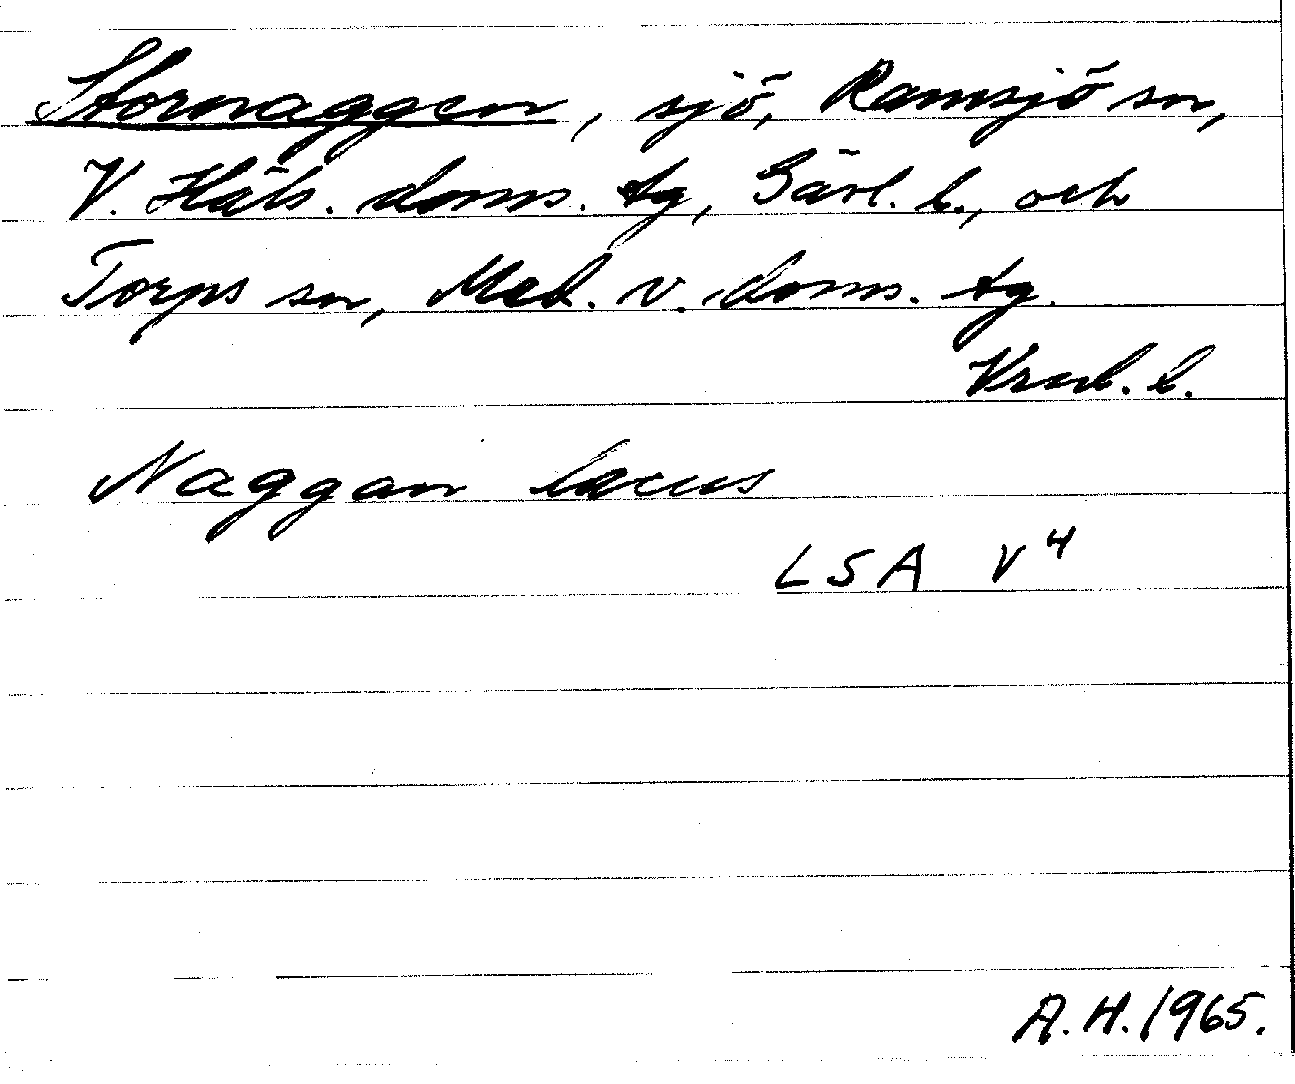 Stornaggen, sjö, Ramsjö sn,
V. Häls. doms. tg, Gävl. l., och
Torps sn, Med. v. doms. tg.
Vrnl. l.
Naggan lacus
LSA V⁴
A.H. 1965.